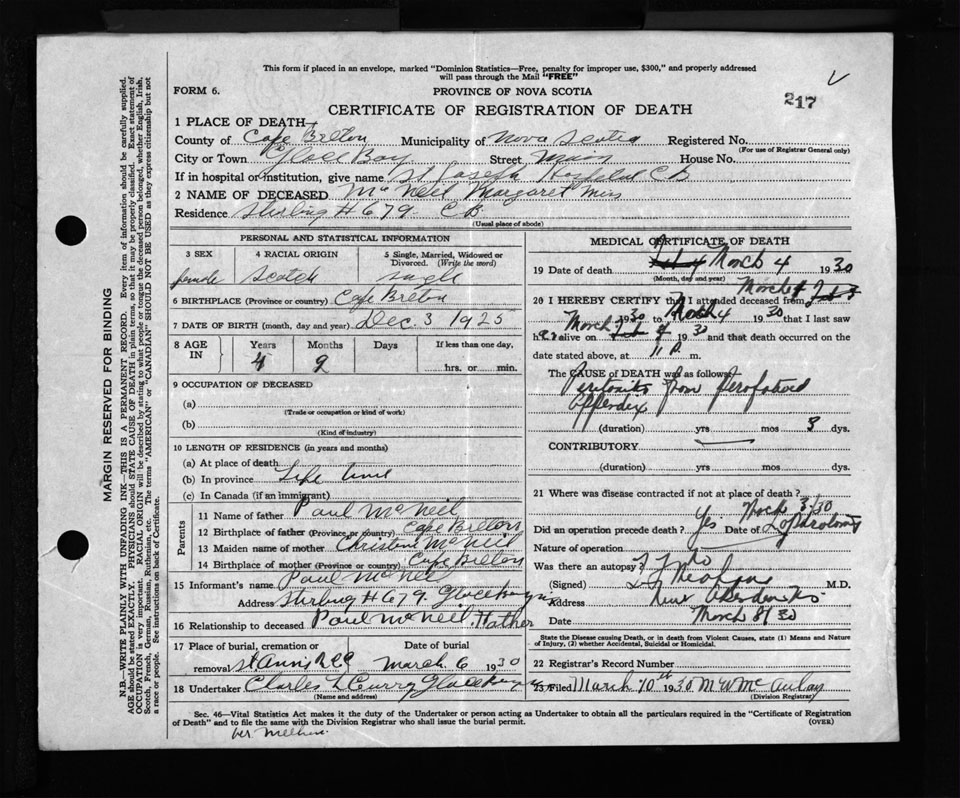 This form if placed in an envelope, marked "Dominion Statistics—Free, penalty for improper use, $300," and properly addressed
will pass through the Mail "FREE"
217
FORM 6.
PROVINCE OF NOVA SCOTIA
CERTIFICATE OF REGISTRATION OF DEATH
1 PLACE OF DEATH
County of Cape Breton Municipality of Nova Scotia Registered No.
(For use of Registrar General only)
City or Town Glace Bay Street Main House No.
If in hospital or institution, give name St Joseph Hospital C B
2 NAME OF DECEASED McNeil Margaret Miss
Residence Stirling # 679. C B
(Usual place of abode)
PERSONAL AND STATISTICAL INFORMATION
3 SEX 4 RACIAL ORIGIN 5 Single, Married, Widowed or Divorced. (Write the word)
female Scotch single
6 BIRTHPLACE (Province or country) Cape Breton
7 DATE OF BIRTH (month, day and year) Dec. 3 1925
8 AGE IN Years Months Days If less than one day,
4 2 hrs. or min.
9 OCCUPATION OF DECEASED
(a)
(Trade or occupation or kind of work)
(b)
(Kind of industry)
10 LENGTH OF RESIDENCE (in years and months)
(a) At place of death
(b) In province Life time
(c) In Canada (if an immigrant)
Parents
11 Name of father Paul McNeil
12 Birthplace of father (Province or country) Cape Breton
13 Maiden name of mother Christine McNeil
14 Birthplace of mother (Province or country) Cape Breton
15 Informant's name Paul McNeil
Address Stirling # 679. Glace Bay
16 Relationship to deceased Paul McNeil, Father
17 Place of burial, cremation or removal Date of burial
St Anns March 6 1930
18 Undertaker Charles L Curry Glace Bay
(Name and address)
MEDICAL CERTIFICATE OF DEATH
19 Date of death March 4 1930
(Month, day and year)
20 I HEREBY CERTIFY that I attended deceased from March
1930 to March 4 1930 that I last saw
her alive on March 4 1930 and that death occurred on the
date stated above, at 11 P. m.
The CAUSE OF DEATH was as follows:
Peritonitis from perforated
appendix
(duration) yrs mos 3 dys.
CONTRIBUTORY
(duration) yrs mos dys.
21 Where was disease contracted if not at place of death?
Did an operation precede death? Yes. Date of March 3/30
Nature of operation
Was there an autopsy? No
(Signed) M.D.
Address New Aberdeen
Date March 8/30
State the Disease causing Death, or in death from Violent Causes, state (1) Means and Nature
of Injury, (2) whether Accidental, Suicidal or Homicidal.
22 Registrar's Record Number
23 Filed March 10th 1930 M W McAulay
(Division Registrar)
Sec. 46—Vital Statistics Act makes it the duty of the Undertaker or person acting as Undertaker to obtain all the particulars required in the "Certificate of Registration
of Death" and to file the same with the Division Registrar who shall issue the burial permit.
(OVER)
MARGIN RESERVED FOR BINDING
N.B.—WRITE PLAINLY WITH UNFADING INK—THIS IS A PERMANENT RECORD. Every item of information should be carefully supplied.
AGE should be stated EXACTLY. PHYSICIANS should STATE CAUSE OF DEATH in plain terms, so that it may be properly classified. Exact statement of
OCCUPATION is very important. RACIAL ORIGIN will be described by stating to what people or tongue the deceased person belonged, whether English, Irish,
Scotch, French, German, Russian, Ruthenian, etc. The terms "AMERICAN" or "CANADIAN" SHOULD NOT BE USED as they express citizenship but not
a race or people. See instructions on back of Certificate.